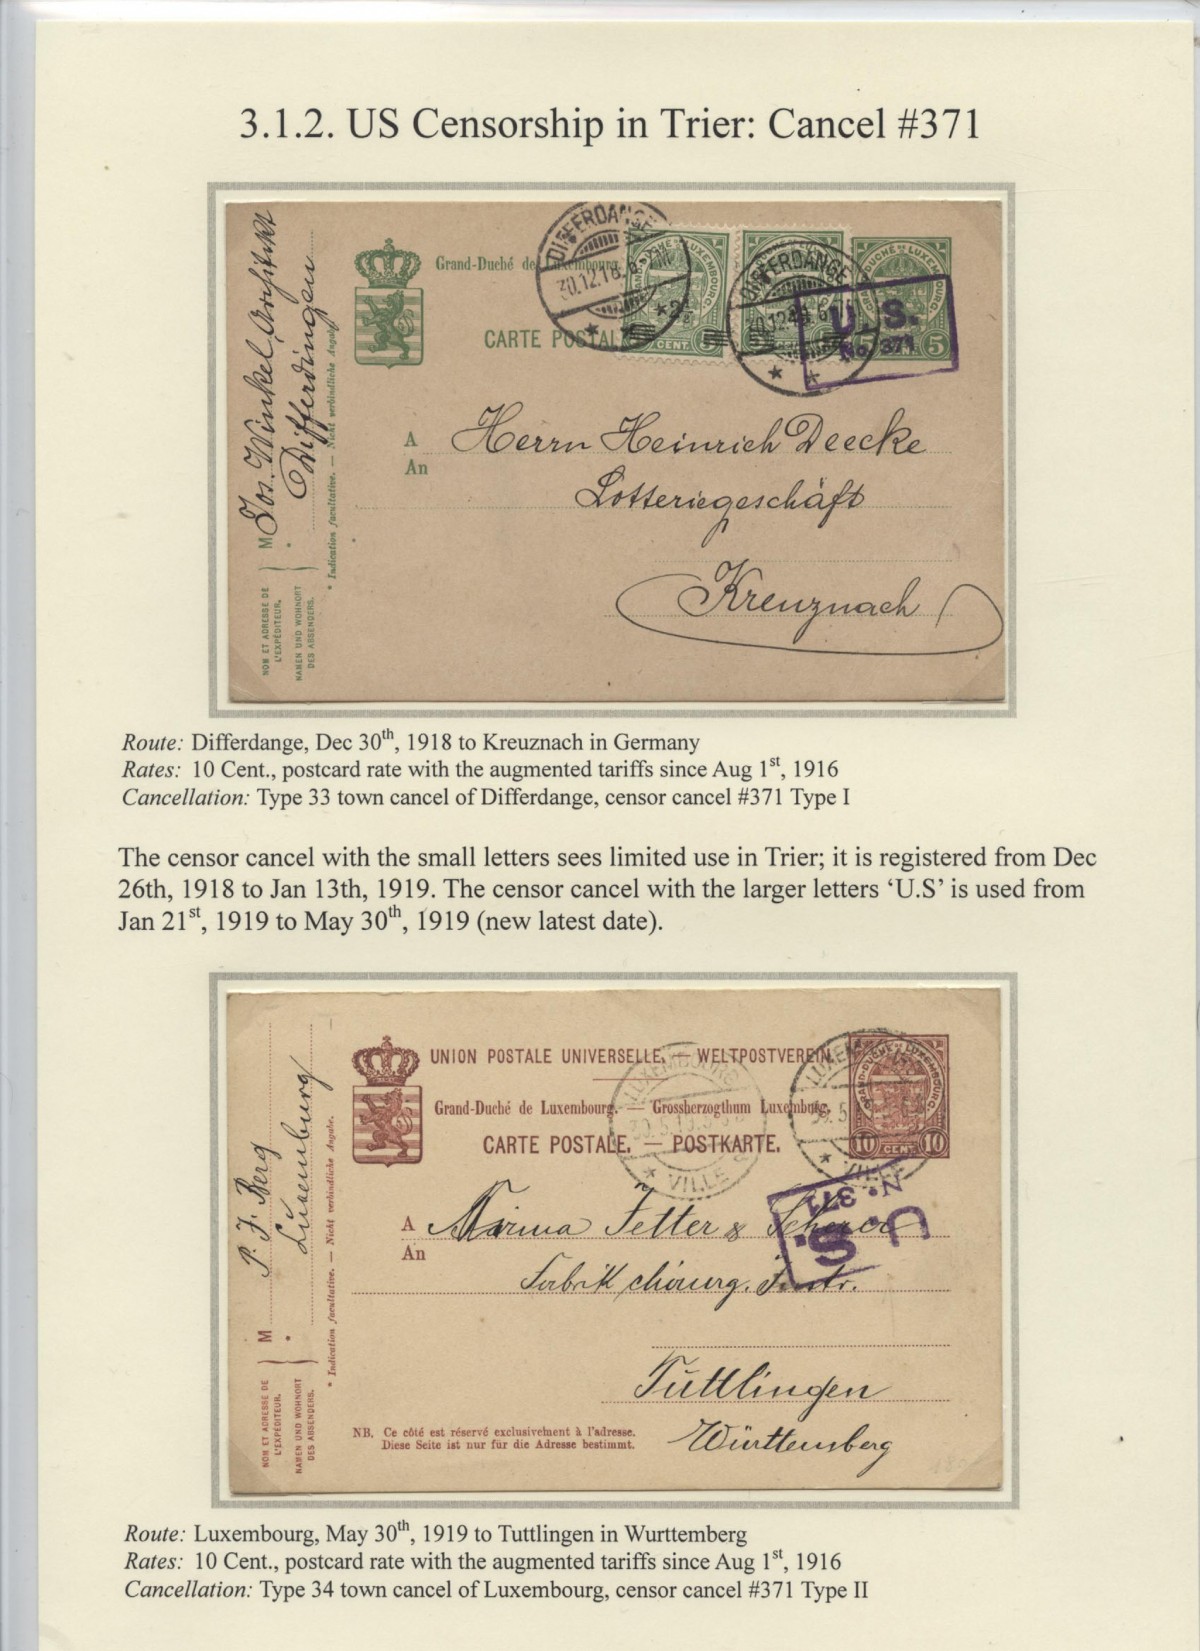 3.1.2. US Censorship in Trier: Cancel #371
DIFFERDANGE
30.12.18. 6-7N
DIFFERDANGE
Grand-Duché de Luxembourg.
CARTE POSTALE
GRAND-DUCHÉ DE LUXEMBOURG.
5 CENT. 5
U. S.
No 371
Jos. Winkel
Differdingen
M
NOM ET ADRESSE DE
L'EXPÉDITEUR.
NAMEN UND WOHNORT
DES ABSENDERS.
* Indication facultative. — Nicht verbindliche Angabe.
A Herrn Heinrich Deecke
An
Lotteriegeschäft
Kreuznach
Route: Differdange, Dec 30th, 1918 to Kreuznach in Germany
Rates: 10 Cent., postcard rate with the augmented tariffs since Aug 1st, 1916
Cancellation: Type 33 town cancel of Differdange, censor cancel #371 Type I
The censor cancel with the small letters sees limited use in Trier; it is registered from Dec
26th, 1918 to Jan 13th, 1919. The censor cancel with the larger letters ‘U.S’ is used from
Jan 21st, 1919 to May 30th, 1919 (new latest date).
UNION POSTALE UNIVERSELLE. — WELTPOSTVEREIN.
Grand-Duché de Luxembourg. — Grossherzogthum Luxemburg.
CARTE POSTALE. — POSTKARTE.
LUXEMBOURG
VILLE
GRAND-DUCHÉ DE LUXEMBOURG.
10 CENT. 10
LUXEMBOURG
VILLE
No. 371
U. S.
P. J. Berg
Luxemburg
M
NOM ET ADRESSE DE
L'EXPÉDITEUR.
NAMEN UND WOHNORT
DES ABSENDERS.
* Indication facultative. — Nicht verbindliche Angabe.
A Firma Fetter & Scherer
An
Fabrik chirurg. Instr.
Tuttlingen
Württemberg
NB. Ce côté est réservé exclusivement à l'adresse.
Diese Seite ist nur für die Adresse bestimmt.
Route: Luxembourg, May 30th, 1919 to Tuttlingen in Wurttemberg
Rates: 10 Cent., postcard rate with the augmented tariffs since Aug 1st, 1916
Cancellation: Type 34 town cancel of Luxembourg, censor cancel #371 Type II